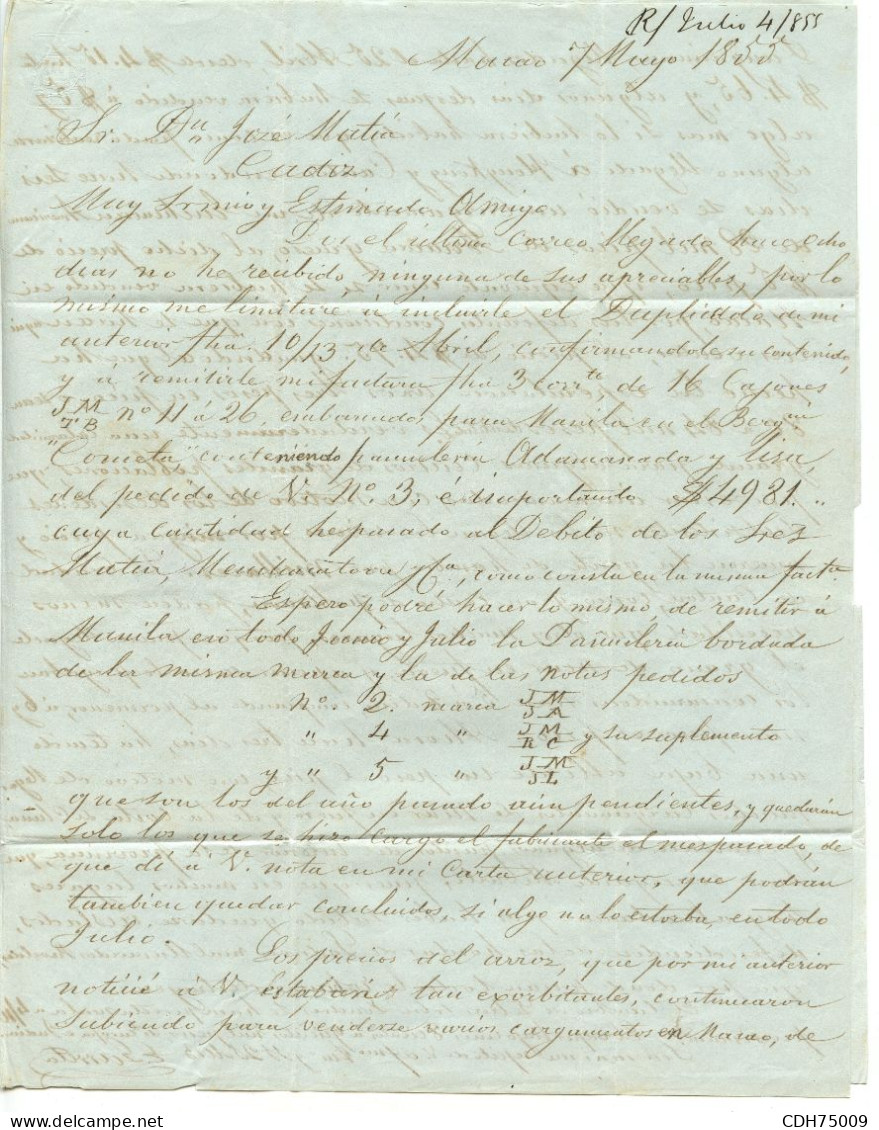 R/ Julio 4/855
Macao 7 Mayo 1855
Sr. Dn José Matia
Cadiz
Muy Sr mio y Estimado Amigo
Por el último correo llegado hace ocho
dias no he recibido ninguna de sus apreciables, por lo
mismo me limitaré á incluirle el Duplicado de mi
anterior fha. 10/13 de Abril, confirmandole su contenido,
y á remitirle mi factura fha 3 corrte de 16 Cajones
JM
TB nº 11 á 26, embarcados para Manila en el Bergn
"Cometa" conteniendo pañuleria Adamascada y lisa,
del pedido de V. Nº. 3, é importando $4981. ..
cuya cantidad he pasado al Debito de los Sres
Matia, Menchacatorre y Ca, como consta en la misma factra.
Espero podré hacer lo mismo, de remitir á
Manila en todo Junio y Julio la Pañuleria bordada
de la misma marca y la de las notas pedidos
nº. 2. marca JM
JA
" 4 " JM
RC y su suplemento
y " 5 " JM
JL
que son los del año pasado aún pendientes, y quedarán
solo los que se hizo cargo el fabricante el mes pasado, de
que di á V. nota en mi carta anterior, que podrán
tambien quedar concluidos, si algo no lo estorba, en todo
Julio.
Los precios del arroz, que por mi anterior
noticié á V. estaban tan exorbitantes, continuaron
subiendo para venderse varios cargamentos en Macao, de
CDH75009